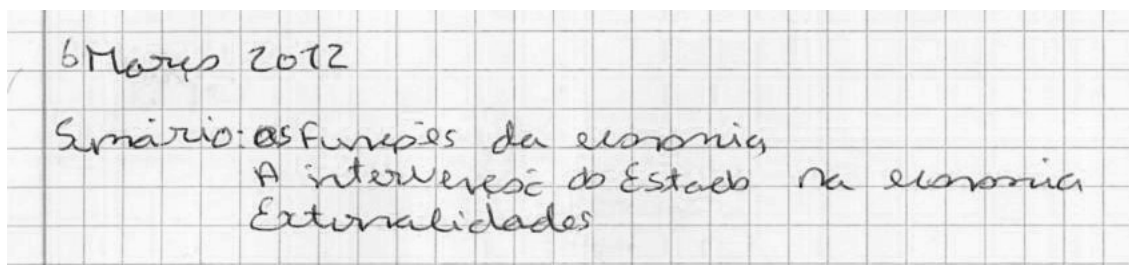 6 Março 2012
Sumário: as Funções da economia
A intervenção do Estado na economia
Externalidades